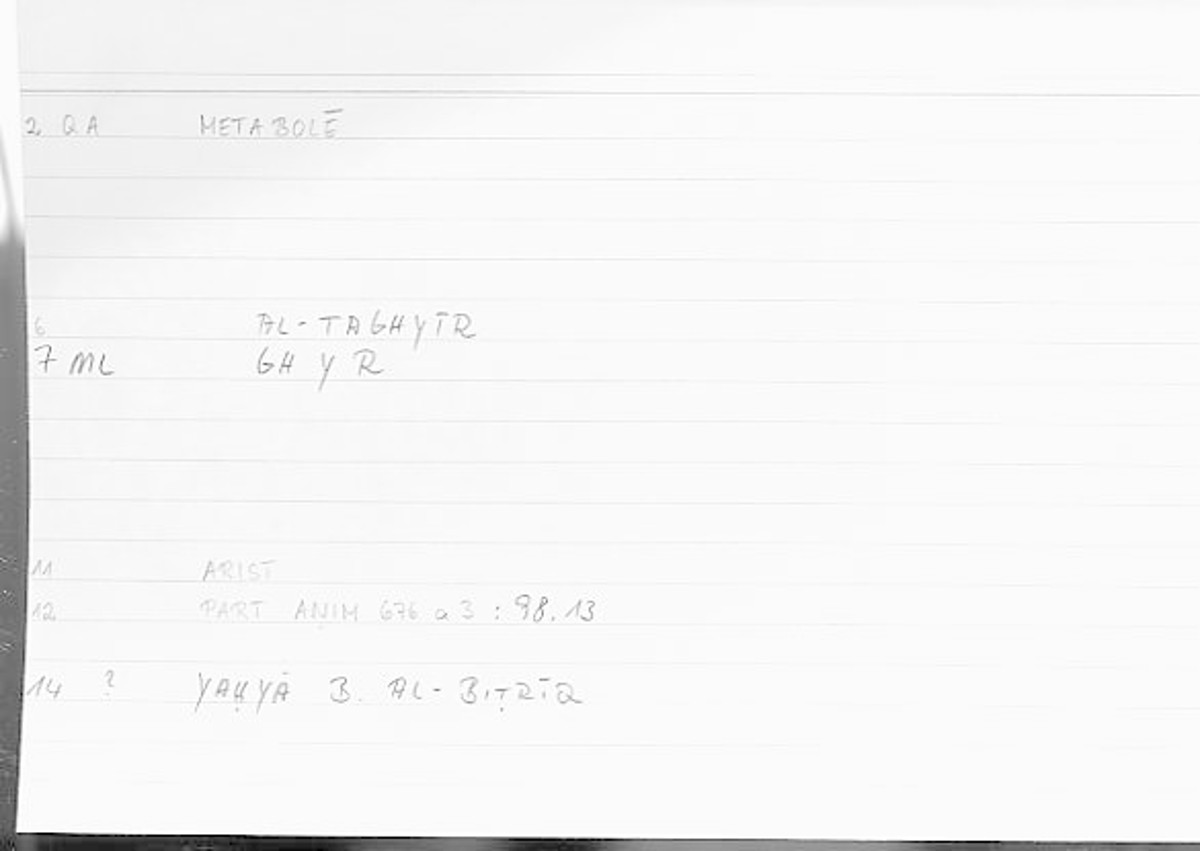 2 QA METABOLĒ
6 AL-TAGHYĪR
7 ML GH Y R
11 ARIST
12 PART ANIM 676 a 3 : 98.13
14 ? YAḤYĀ B. AL-BIṬRĪQ